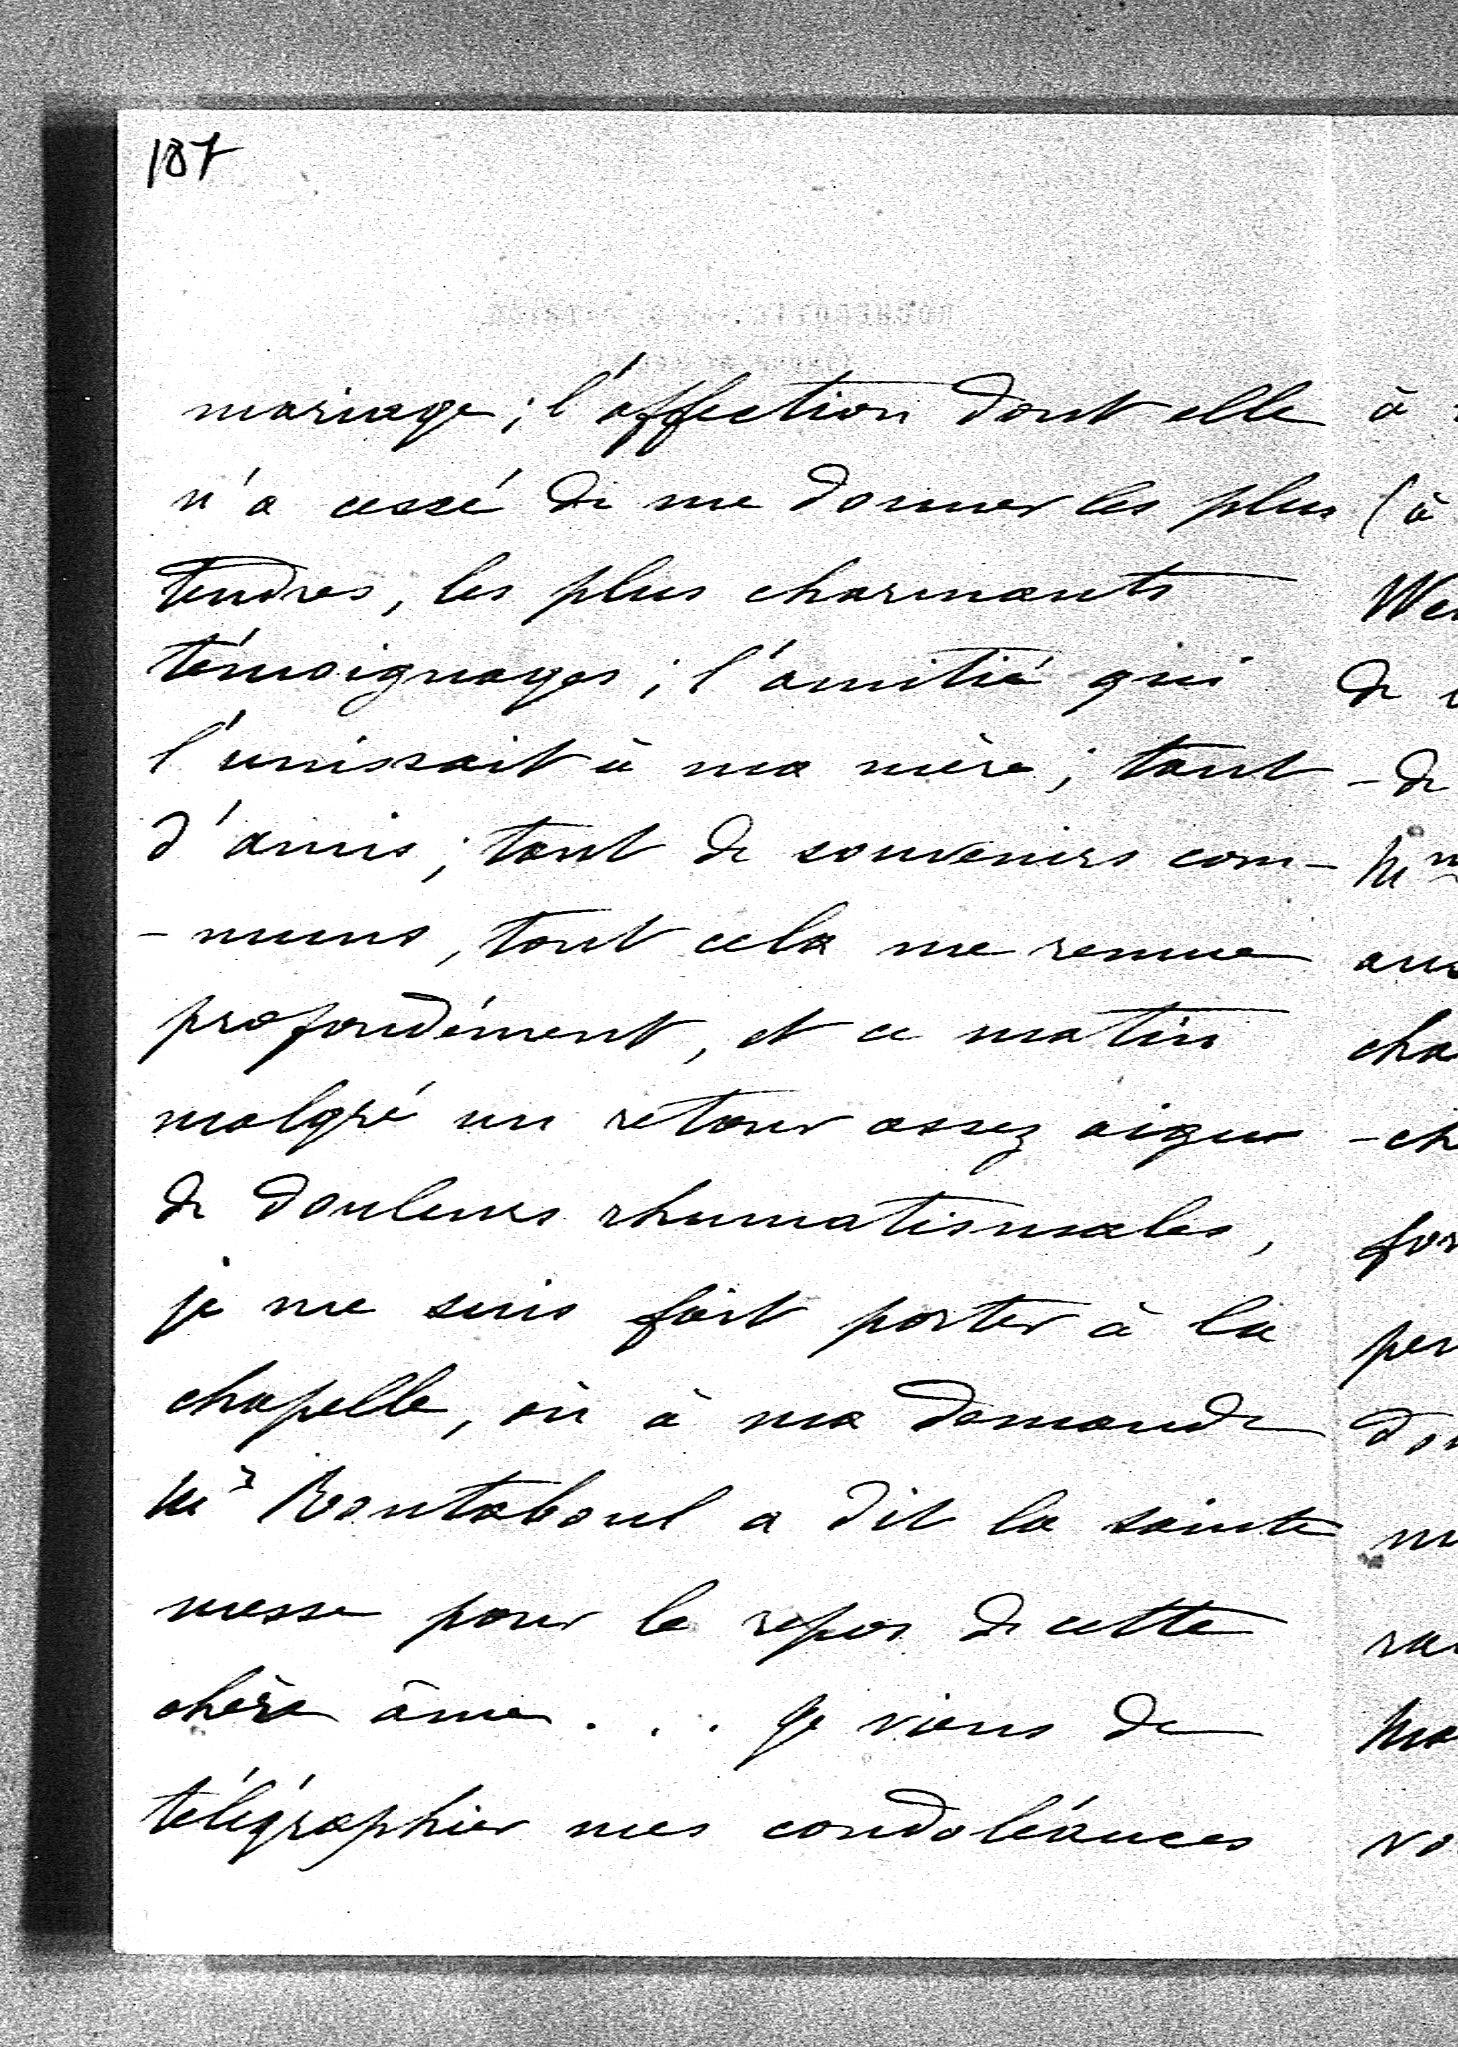 187
mariage; l'affection dont elle
n'a cessé de me donner les plus
tendres, les plus charmants
témoignages; l'amitié qui
l'unissait à ma mère; tant
d'amis; tant de souvenirs com-
-muns, tout cela me remue
profondément, et ce matin
malgré un retour assez aigu
de douleurs rhumatismales,
je me suis fait porter à la
chapelle, où à ma demande
Mr Bontaboul a dit la sainte
messe pour le repos de cette
chère âme . . . Je viens de
télégraphier mes condoléances
à
(à
de
-de